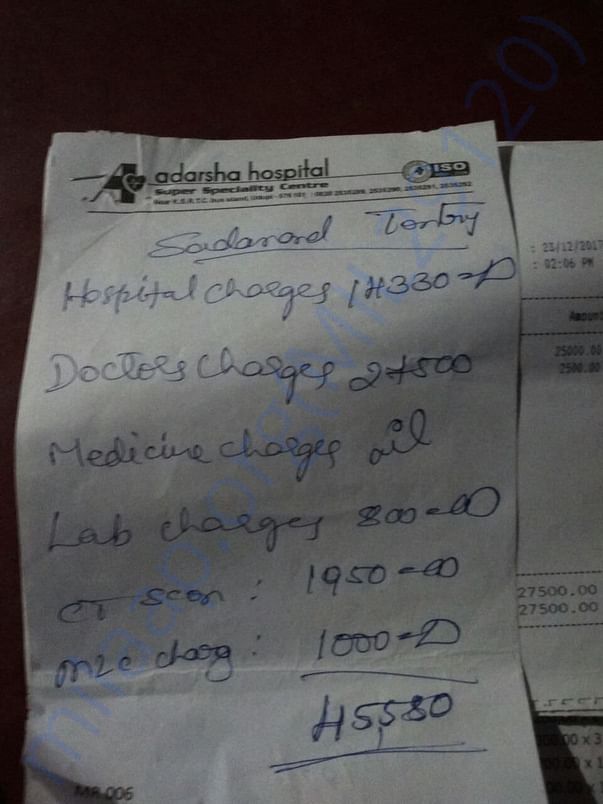 adarsha hospital
ISO
Super Speciality Centre
Near K.S.R.T.C. bus stand, Udupi - 576 101
Sadanand
Hospital charges 14330=00
Doctors charges 27500
Medicine charges nil
Lab charges 800=00
CT scan : 1950=00
MLC charg : 1000=00
45,580
MR 006
: 23/12/2017
: 02:06 PM
Amount
25000.00
2500.00
27500.00
27500.00
milaap.org